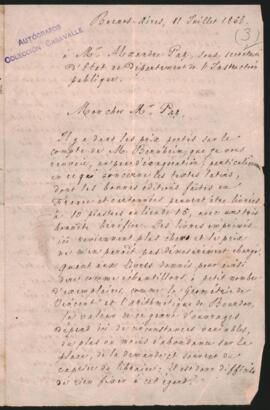 Buenos-Aires, 11 Juillet 1856.
(3)
AUTÓGRAFOS
COLECCIÓN CASAVALLE
à Mr. Alexander Paz, sous secrétaire
d'Etat du Département de l'Instruction
publique.
Mon cher Mr. Paz.
Il y a dans les prix portés sur le
compte de M. que je vous
renvoie, un peu d'exagération; particulièrement
en ce qui concerne les textes latins,
dont les bonnes éditions faites en
France et cartonnées peuvent être livrées
à 10 piastres au lieu de 15, avec un très
honnête bénéfice. Les livres imprimés
ici reviennent plus chers et le prix
ne m'en paraît pas démesurément chargé.
Quant aux livres donnés, pour ainsi
dire comme échantillons, à petit nombre
d'exemplaires, comme la Géométrie de
Vincent et l'arithmétique de Bourdon,
la valeur de ce genre d'ouvrages
dépend ici de circonstances variables,
du plus ou moins d'abondance sur la
place, de la demande, et souvent du
caprice du libraire; il est donc difficile
de rien fixer à cet égard.